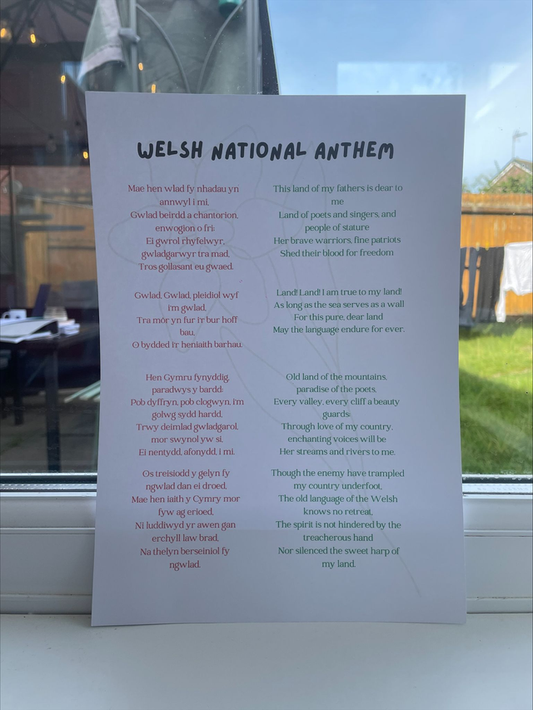 WELSH NATIONAL ANTHEM
Mae hen wlad fy nhadau yn
annwyl i mi,
Gwlad beirdd a chantorion,
enwogion o fri;
Ei gwrol rhyfelwyr,
gwladgarwyr tra mad,
Tros gollasant eu gwaed.
Gwlad, Gwlad, pleidiol wyf
i'm gwlad,
Tra môr yn fur i'r bur hoff
bau,
O bydded i'r heniaith barhau.
Hen Gymru fynyddig,
paradwys y bardd;
Pob dyffryn, pob clogwyn, i'm
golwg sydd hardd,
Trwy deimlad gwladgarol,
mor swynol yw si,
Ei nentydd, afonydd, i mi.
Os treisiodd y gelyn fy
ngwlad dan ei droed,
Mae hen iaith y Cymry mor
fyw ag erioed,
Ni luddiwyd yr awen gan
erchyll law brad,
Na thelyn berseiniol fy
ngwlad.
This land of my fathers is dear to
me
Land of poets and singers, and
people of stature
Her brave warriors, fine patriots
Shed their blood for freedom
Land! Land! I am true to my land!
As long as the sea serves as a wall
For this pure, dear land
May the language endure for ever.
Old land of the mountains,
paradise of the poets,
Every valley, every cliff a beauty
guards;
Through love of my country,
enchanting voices will be
Her streams and rivers to me.
Though the enemy have trampled
my country underfoot,
The old language of the Welsh
knows no retreat,
The spirit is not hindered by the
treacherous hand
Nor silenced the sweet harp of
my land.